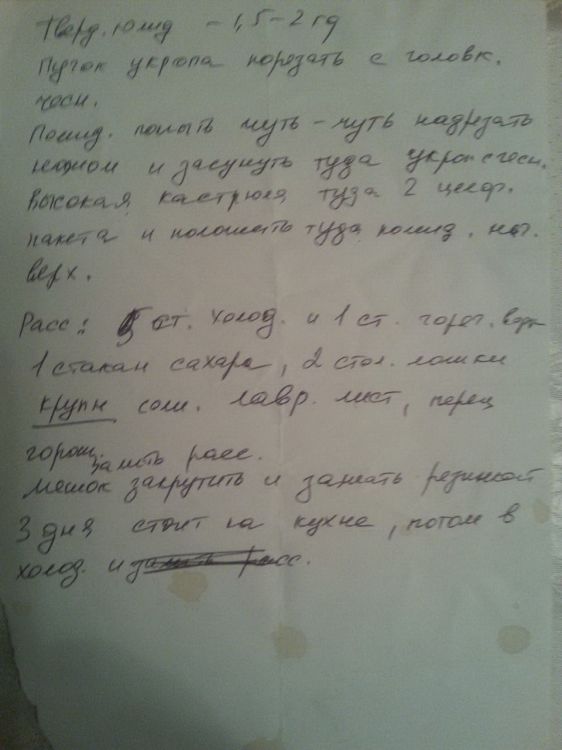 Тверд. помид – 1,5–2 кг
Пучок укропа порезать с головк.
чесн.
Помид. помыть чуть-чуть надрезать
ножом и засунуть туда укроп с чесн.
Высокая кастрюля туда 2 целоф.
пакета и положить туда помид. на
верх.
Расс: 5 ст. холод. и 1 ст. горяч. воды
1 стакан сахара, 2 стол. ложки
крупн соли. лавр. лист, перец
горош.
залить расс.
мешок закрутить и зажать резинкой
3 дня стоит на кухне, потом в
холод. и залить расс.